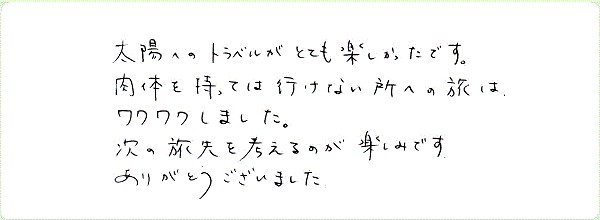 太陽へのトラベルがとても楽しかったです。
肉体を持っては行けない所への旅は、
ワクワクしました。
次の旅先を考えるのが楽しみです
ありがとうございました